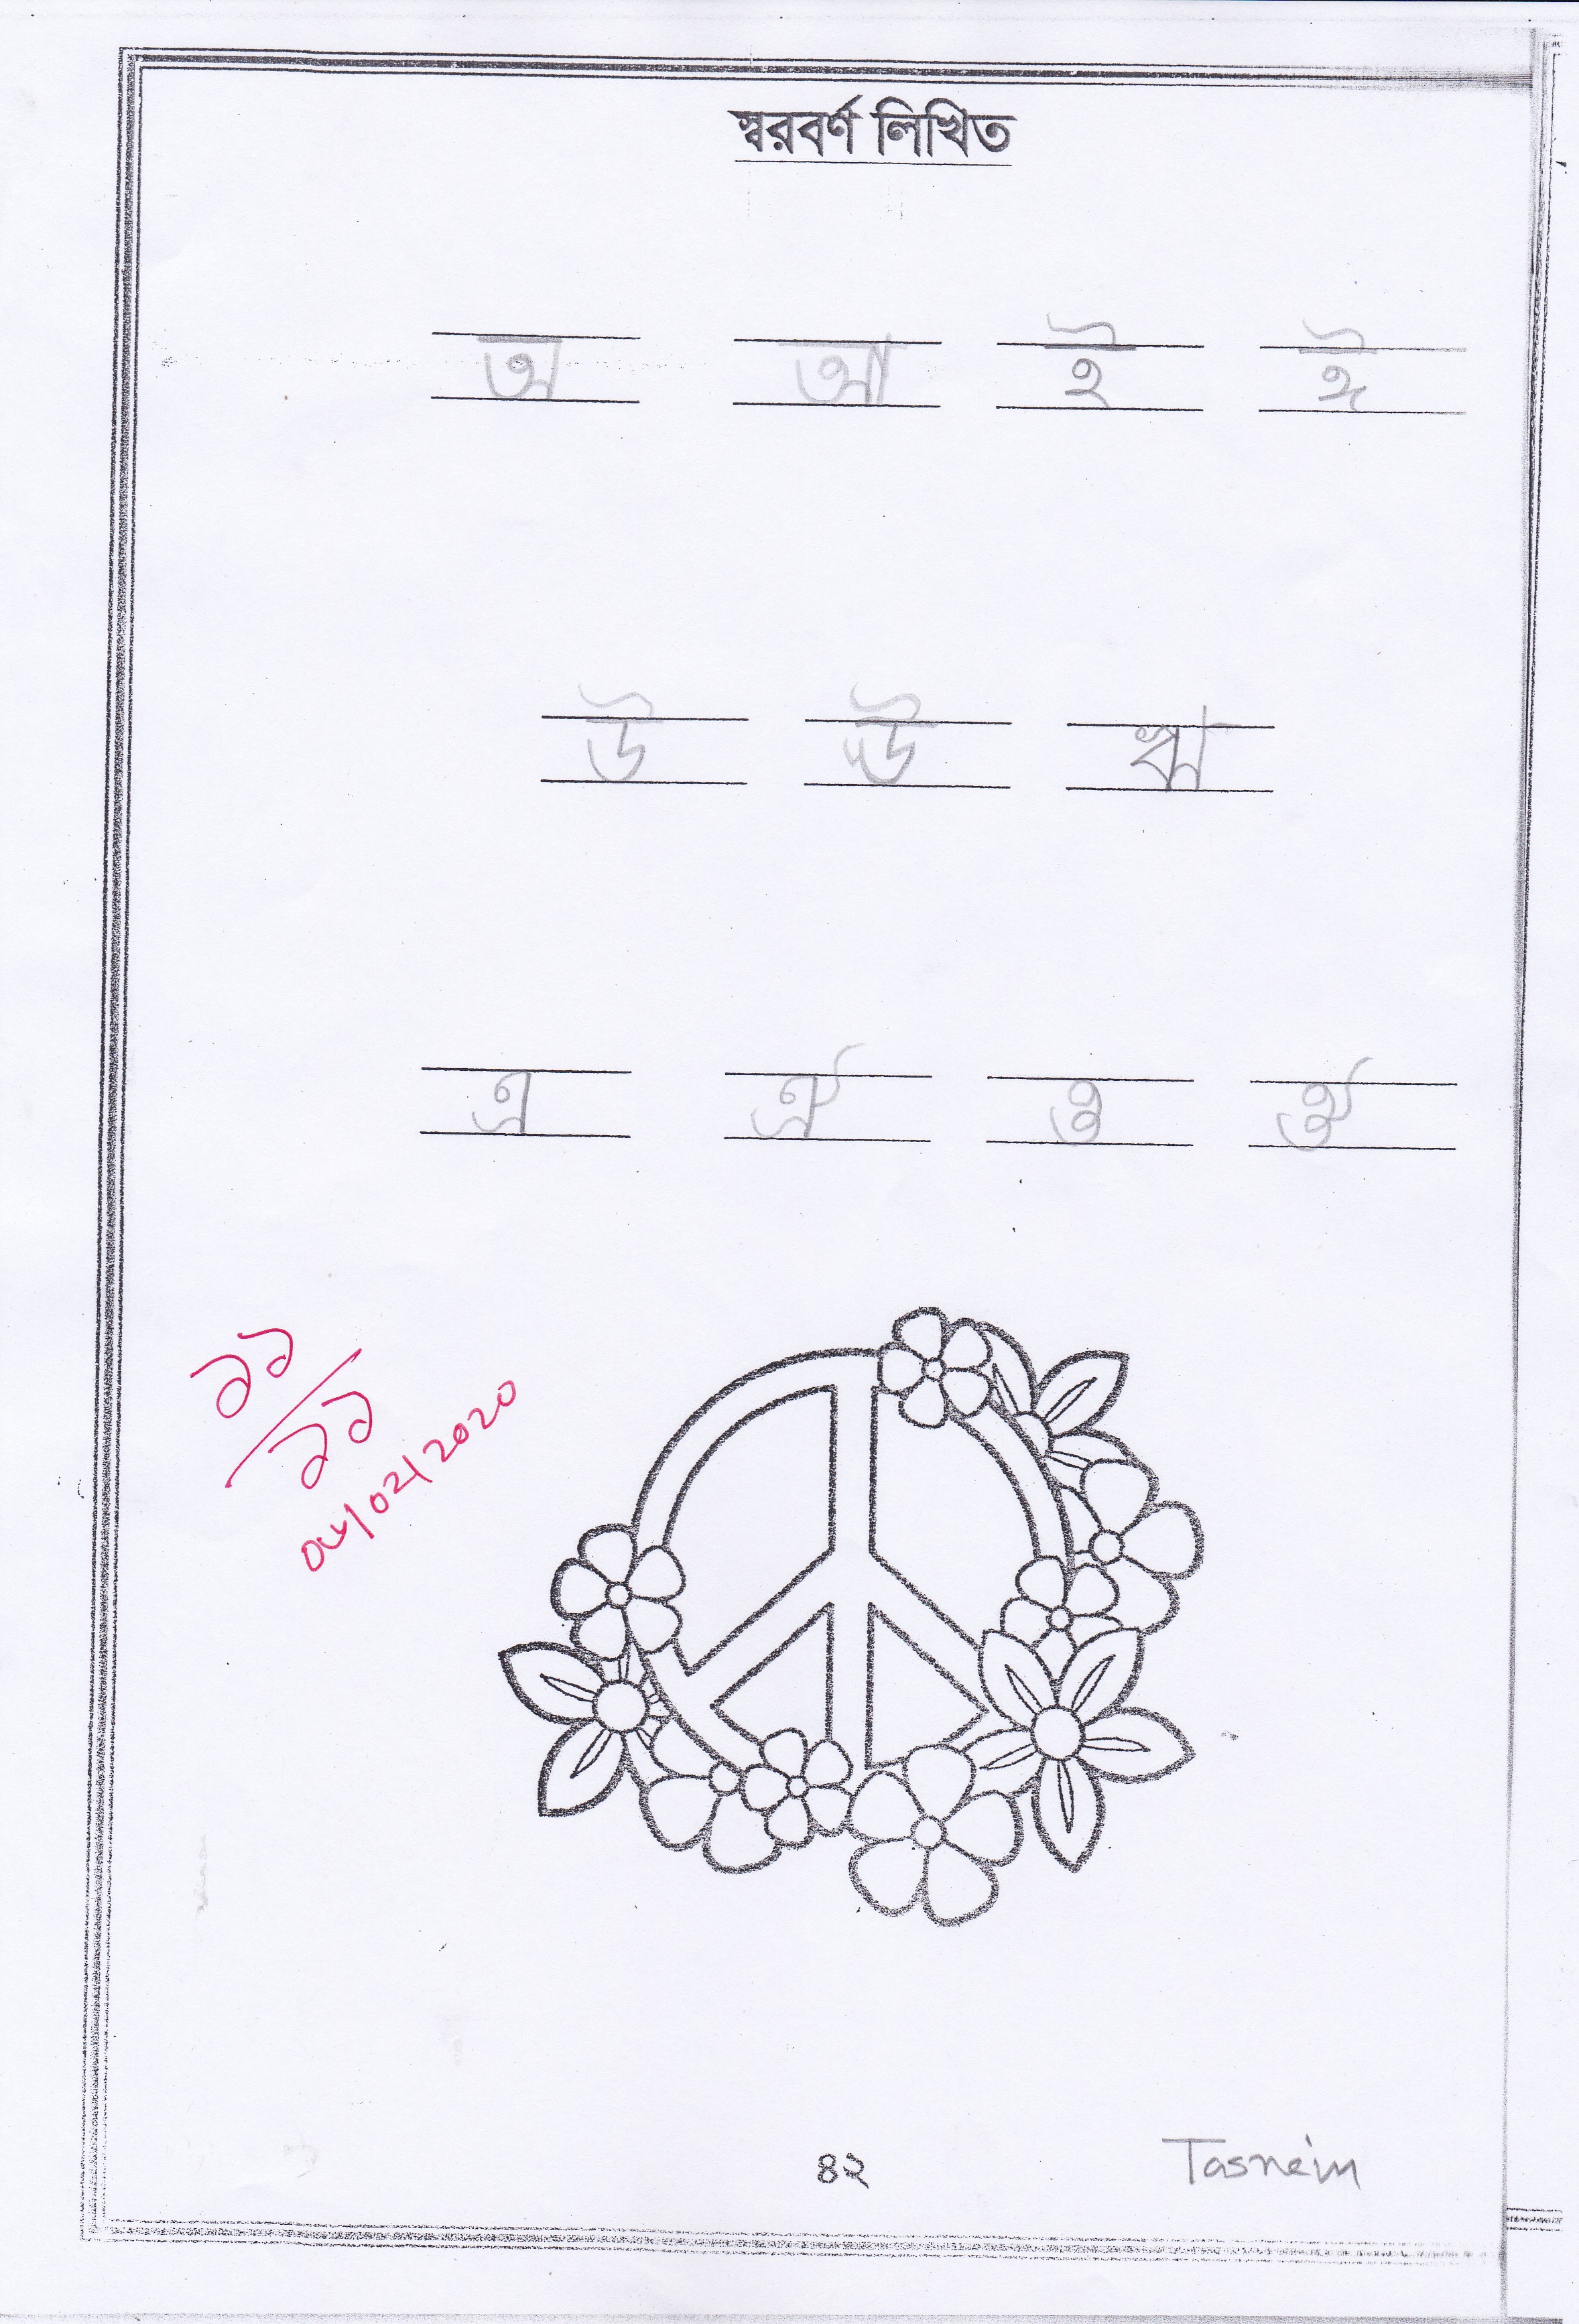 স্বরবর্ণ লিখিত
অ আ ই ঈ
উ ঊ ঋ
এ ঐ ও ঔ
১১
১১
০৮/০২/২০২০
৪২
Tasneim